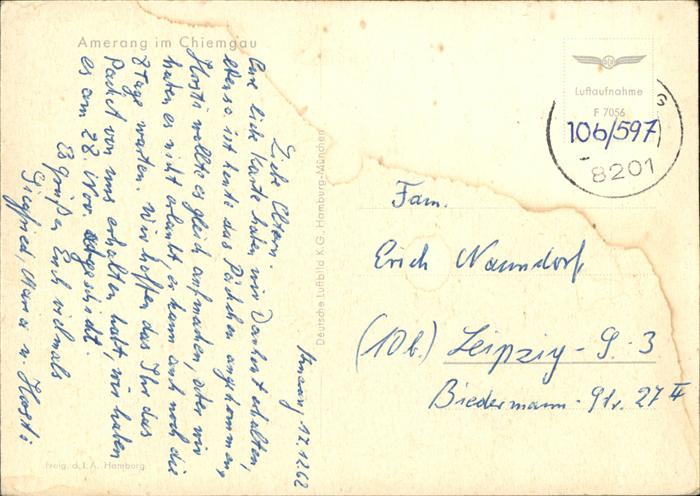 Amerang im Chiemgau
Amerang 17.12.62
Liebe Eltern!
Eure liebe Karte haben wir Dankest erhalten,
ebenso ist heute das Päckchen angekommen,
Horsti wollte es gleich aufmachen, aber wir
haben es nicht erlaubt, er kann auch noch die
8 Tage warten. Wir hoffen das Ihr das
Packet von uns erhalten habt, wir haben
es am 28. Nov. abgeschickt.
Es grüßen Euch vielmals
Siegfried, Maria u. Horsti
Freig. d. L.A. Hamburg
Deutsche Luftbild K.G. Hamburg-München
Luftaufnahme
F 7056
G
106/597
8201
Fam.
Erich Naundorf
(10b.) Leipzig - S. 3
Biedermann-Str. 27 II